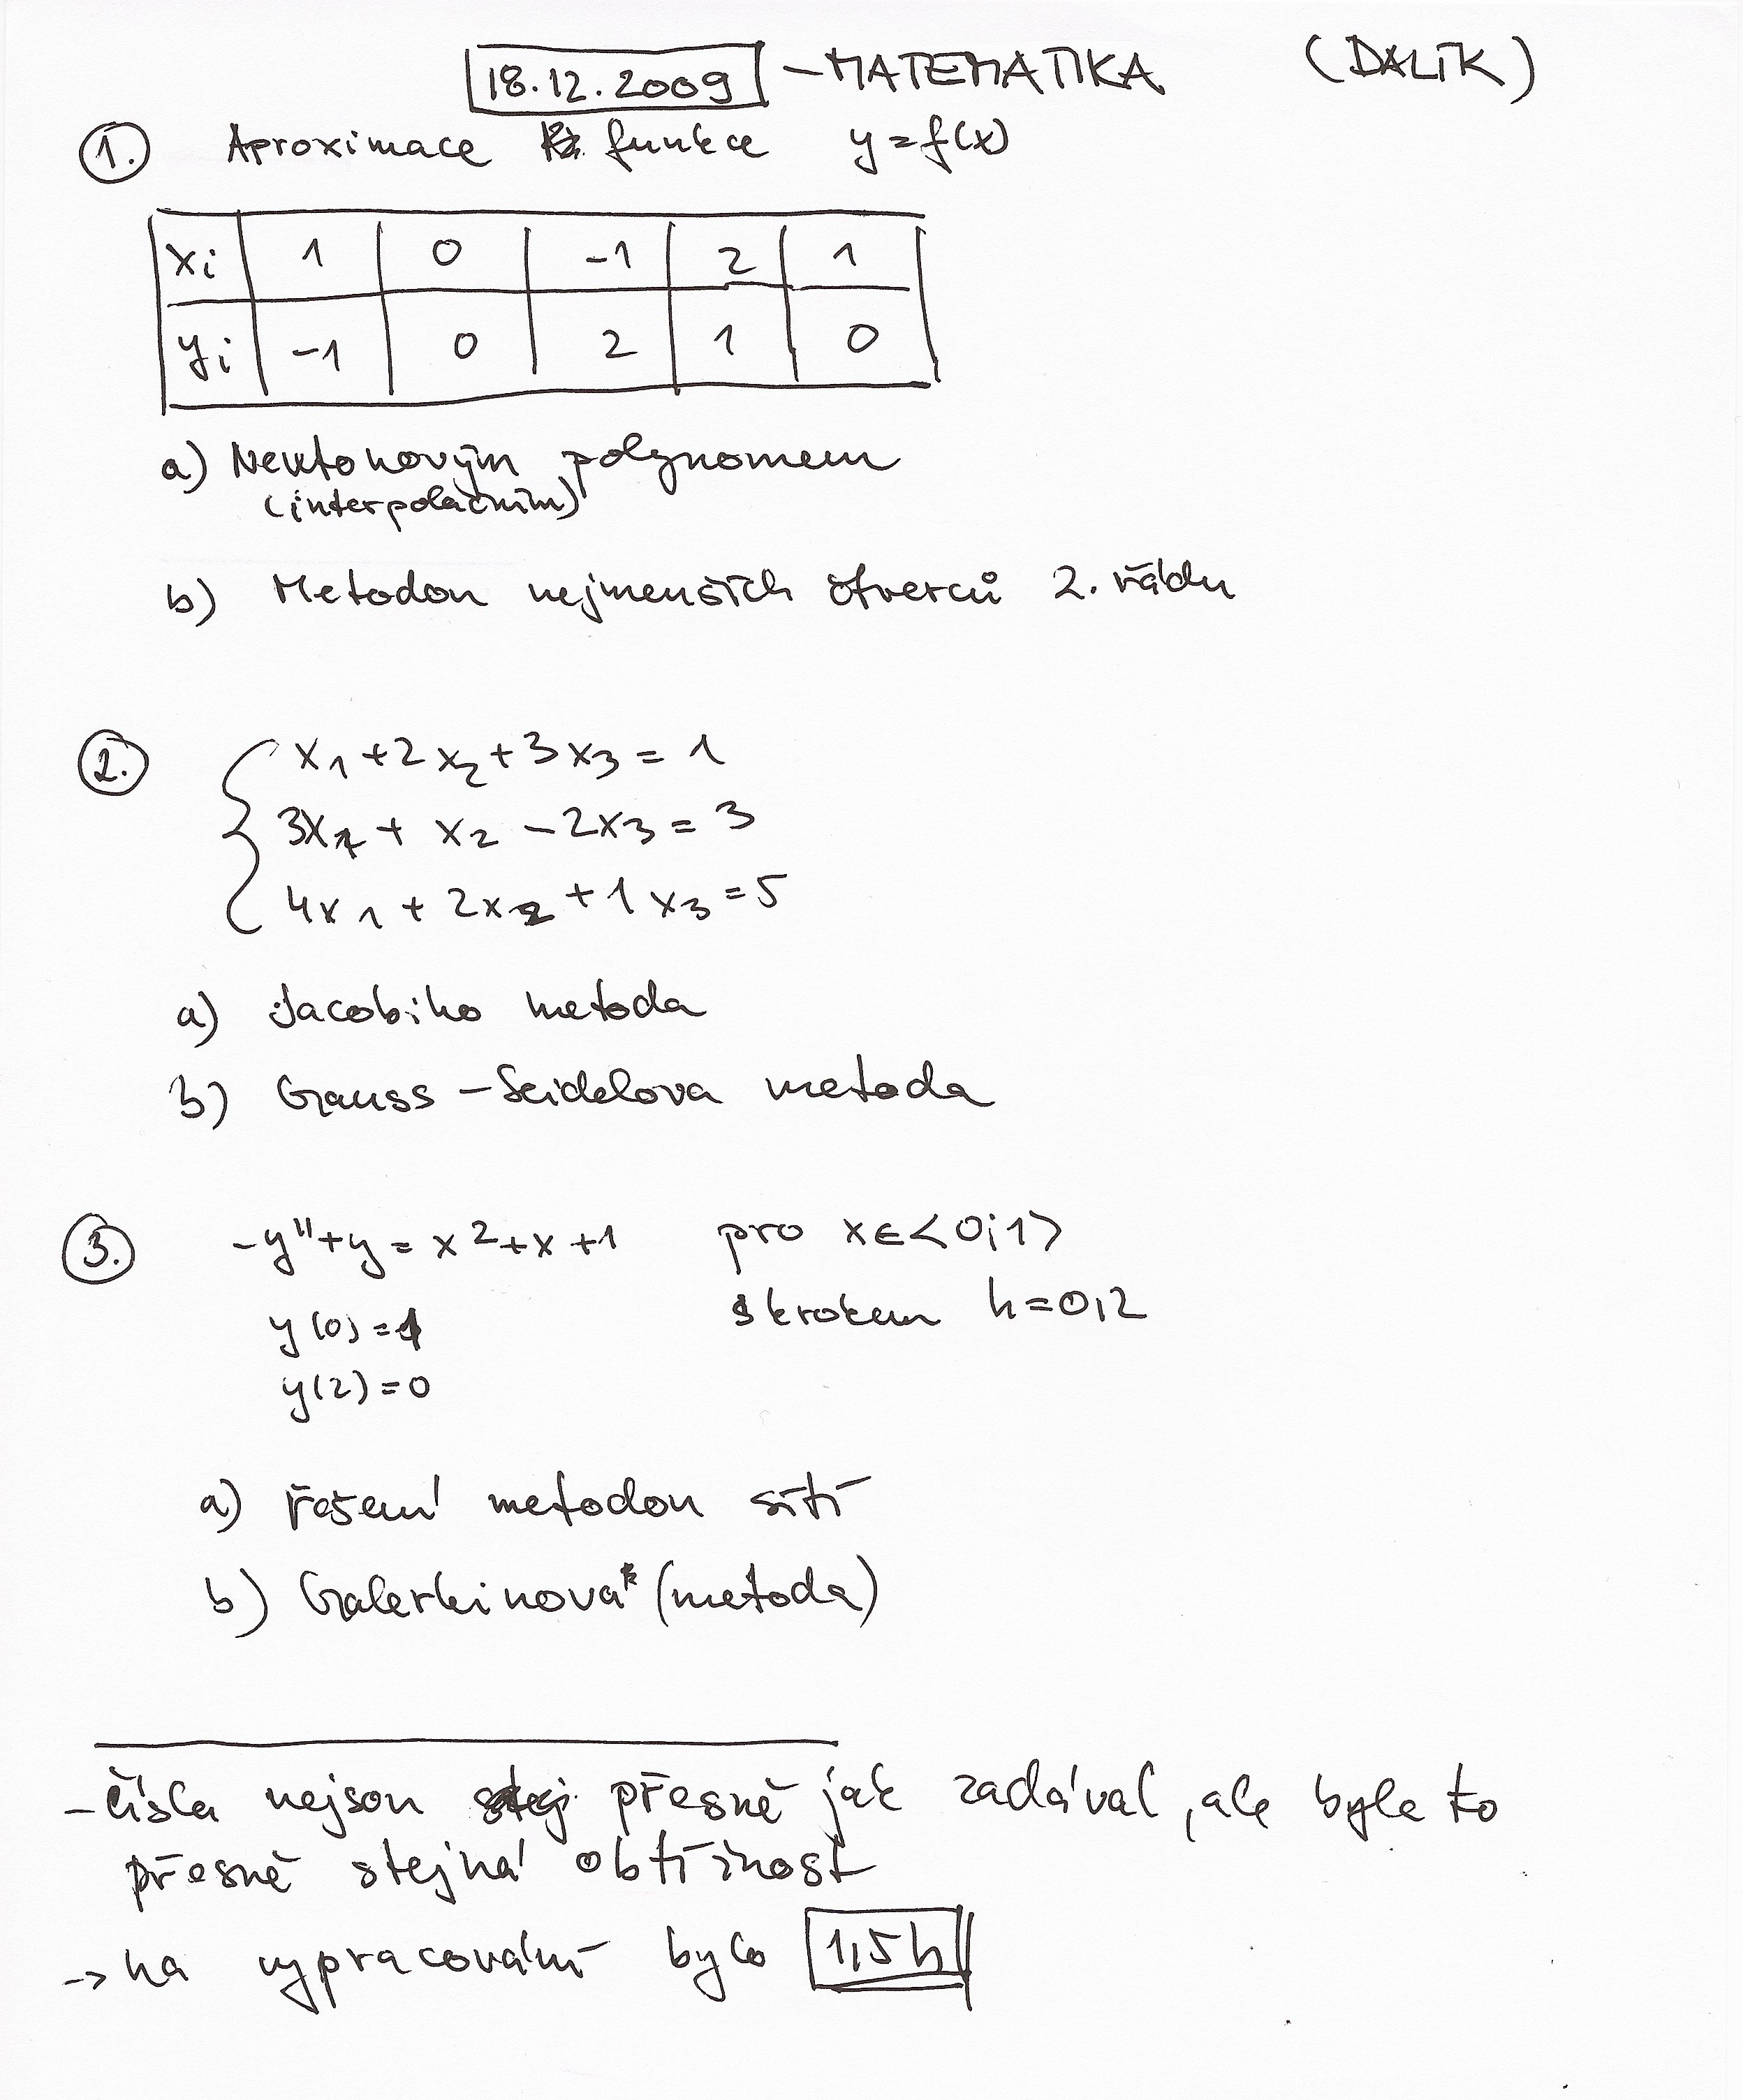 18.12.2009 – MATEMATIKA (DALÍK)
1. Aproximace funkce y=f(x)
xi 1 0 -1 2 1
yi -1 0 2 1 0
a) Newtonovým polynomem
(interpolačním)
b) Metodou nejmenších čtverců 2. řádu
2. x1+2x2+3x3=1
3x1+x2-2x3=3
4x1+2x2+1x3=5
a) Jacobiho metoda
b) Gauss-Seidelova metoda
3. -y''+y=x²+x+1 pro x∈<0;1>
y(0)=1 s krokem h=0,2
y(2)=0
a) řešení metodou sítí
b) Galerkinova (metoda)
- čísla nejsou přesně jak zadával, ale byla to
přesně stejná obtížnost
→ na vypracování bylo 1,5h